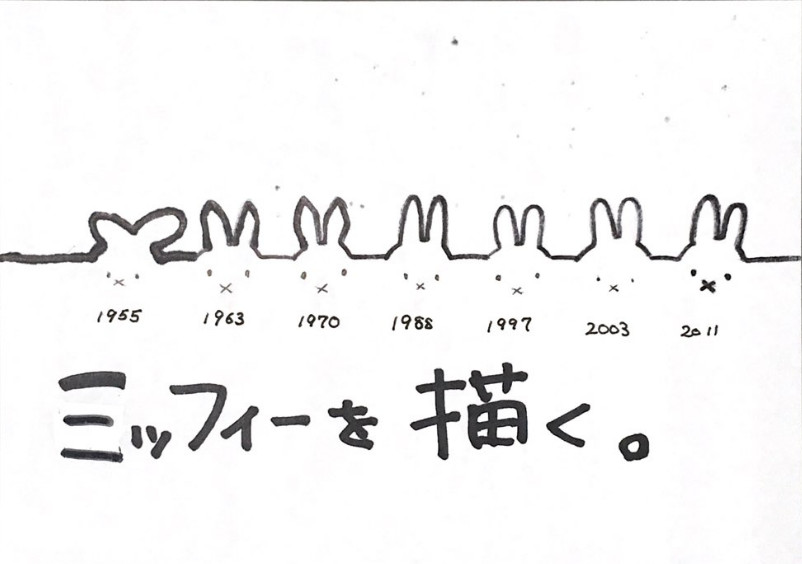 1955 1963 1970 1988 1997 2003 2011
ミッフィーを描く。